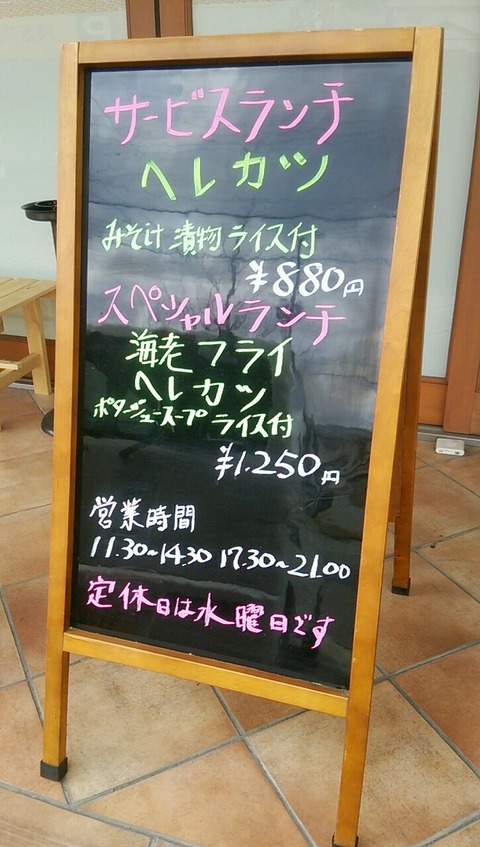 サービスランチ
ヘレカツ
みそ汁 漬物 ライス付
¥880円
スペシャルランチ
海老フライ
ヘレカツ
ポタージュースープ ライス付
¥1.250円
営業時間
11.30~14.30 17.30~21.00
定休日は水曜日です